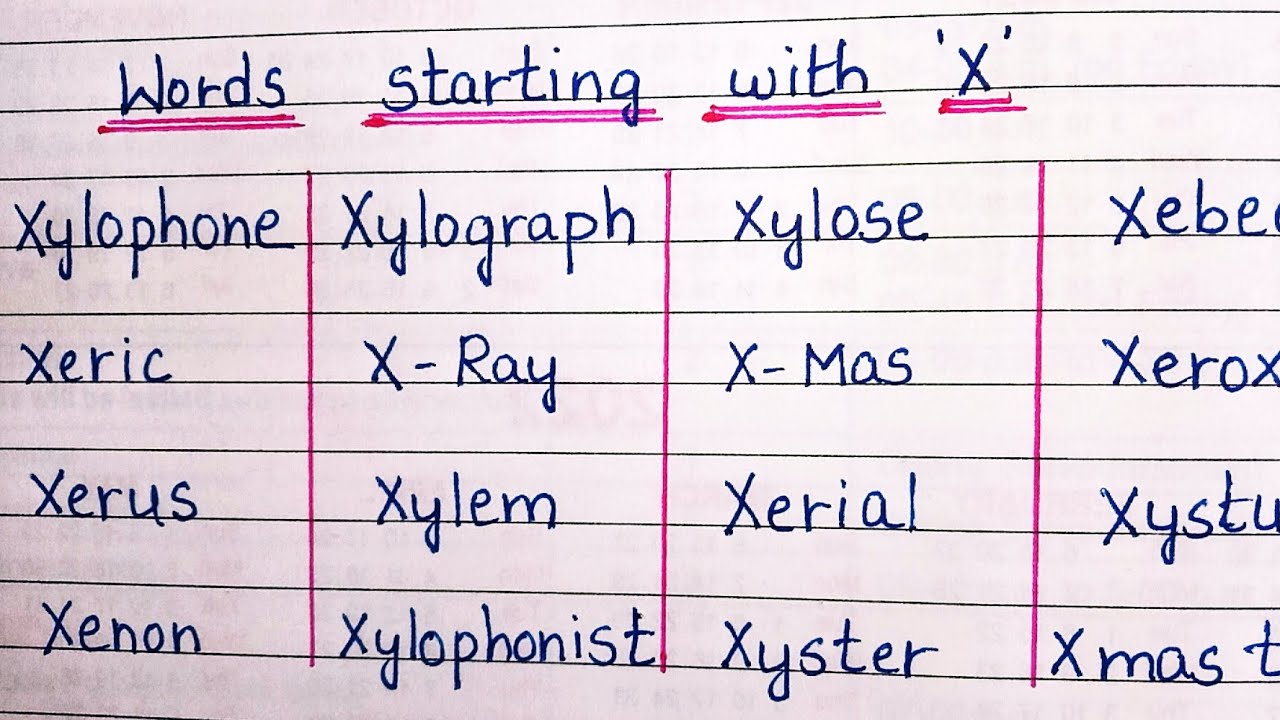 Words starting with 'X'
Xylophone Xylograph Xylose Xebe
Xeric X-Ray X-Mas Xerox
Xerus Xylem Xerial Xystu
Xenon Xylophonist Xyster Xmas t